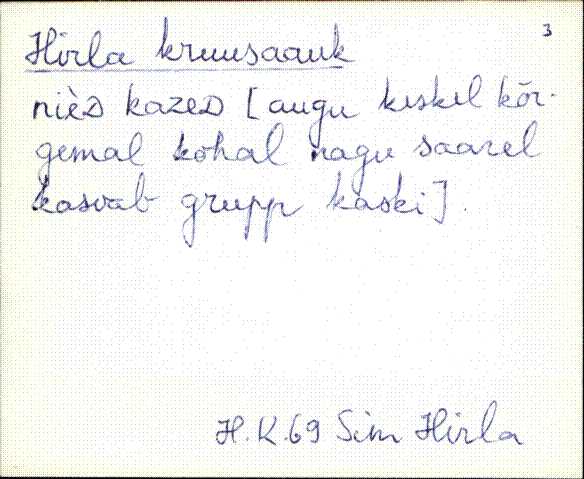 3
Hirla kruusaauk
nièᴅ kazeᴅ [augu keskel kõr-
gemal kohal nagu saarel
kasvab grupp kaski].
H.K.69 Sim Hirla